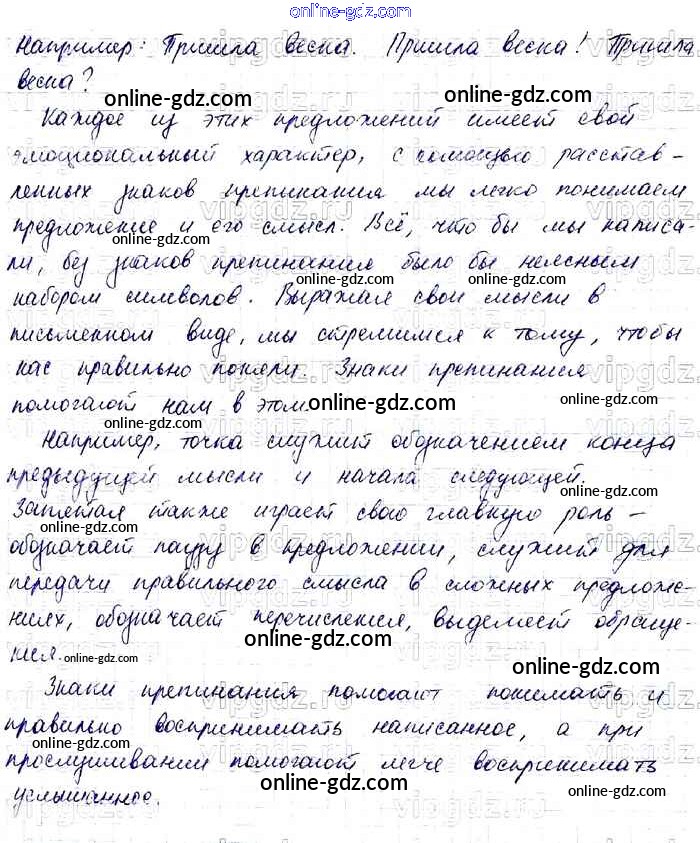 online-gdz.com
Например: Пришла весна. Пришла весна! Пришла
весна?
online-gdz.com online-gdz.com
Каждое из этих предложений имеет свой
эмоциональный характер, с помощью расстав-
online-gdz.com online-gdz.com
ленных знаков препинания мы легко понимаем
предложение и его смысл. Всё, что бы мы написа-
online-gdz.com online-gdz.com
ли, без знаков препинания было бы неясным
набором символов. Выражая свои мысли в
online-gdz.com online-gdz.com
письменном виде, мы стремимся к тому, чтобы
нас правильно поняли. Знаки препинания
помогают нам в этом.
online-gdz.com online-gdz.com
Например, точка служит обозначением конца
предыдущей мысли и начала следующей.
online-gdz.com online-gdz.com
Запятая также играет свою главную роль –
online-gdz.com
обозначает паузу в предложении, служит для
online-gdz.com
передачи правильного смысла в сложных предложе-
online-gdz.com
ниях, обозначает перечисления, выделяет обраще-
online-gdz.com
ния.
online-gdz.com online-gdz.com
Знаки препинания помогают понимать и
правильно воспринимать написанное, а при
online-gdz.com online-gdz.com
прослушивании помогают легче воспринимать
online-gdz.com online-gdz.com
услышанное.
vipgdz.ru